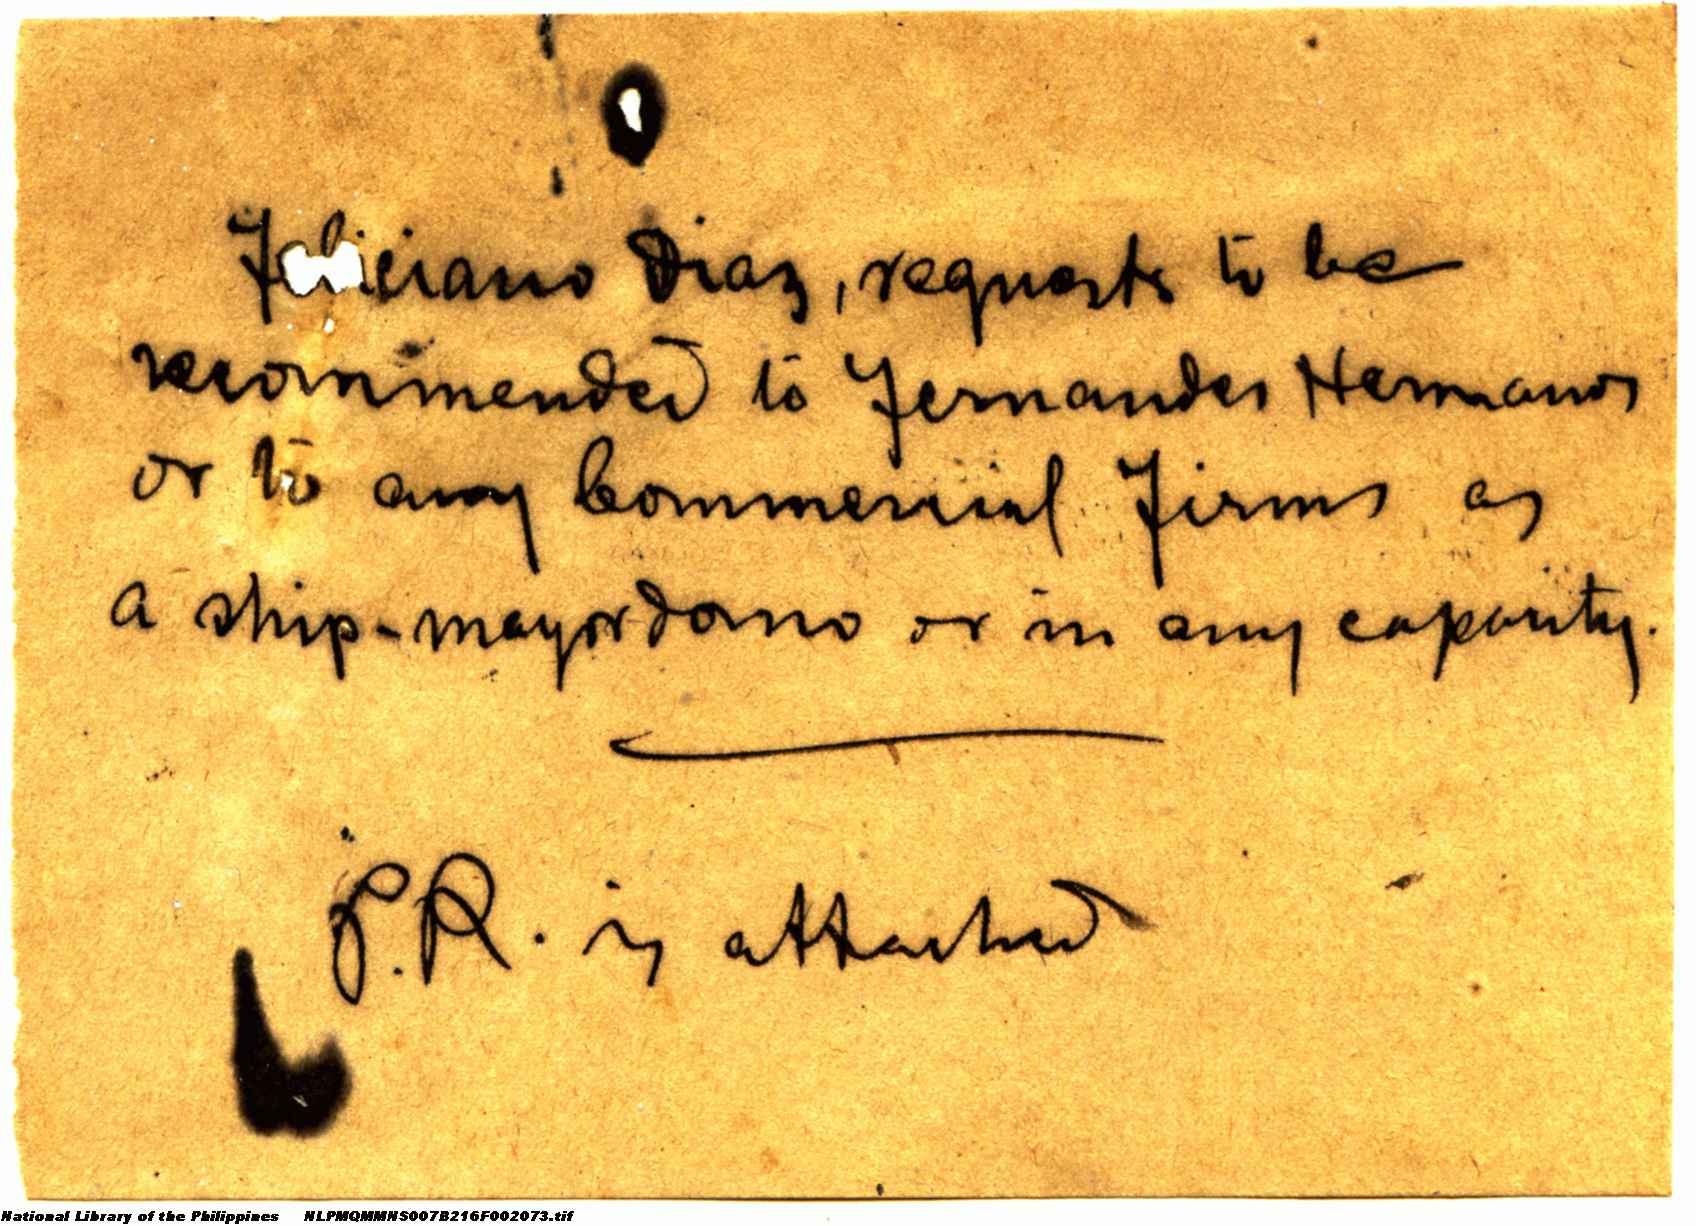 Feliciano Diaz, requests to be
recommended to Fernandez Hermanos
or to any Commercial Firms as
a ship-mayordomo or in any capacity.
P.R. is attached
National Library of the Philippines NLPMQMMNS007B216F002073.tif